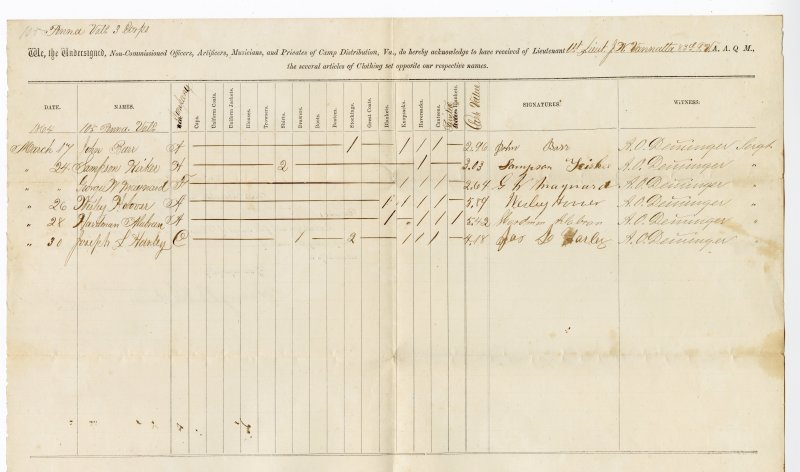 105 Penna Vols 3 Corps
We, the Undersigned, Non-Commissioned Officers, Artificers, Musicians, and Privates of Camp Distribution, Va., do hereby acknowledge to have received of Lieutenant 1st Lieut J. W. Vannatta A. A. Q M.,
the several articles of Clothing set opposite our respective names.
DATE. NAMES. Caps. Uniform Coats. Uniform Jackets. Blouses. Trowsers. Shirts. Drawers. Boots. Bootees. Stockings. Great Coats. Blankets. Knapsacks. Haversacks. Canteens. Blankets. Cash Value SIGNATURES. WITNESS.
1864 105 Penna Vols
March 17 John Barr A 1 1 1 1 2.96 John Barr A. O. Deininger Sergt.
" 24 Sampson A 2 1 3.03 Sampson A. O. Deininger "
" " George W Maynard 1 1 1 1 2.64 G W Maynard A. O. Deininger "
" 26 Wesley Hoover A 1 1 1 1 Wesley Hoover A. O. Deininger "
" 28 A 1 1 1 1 5.42 A. O. Deininger "
" 30 Joseph L C 1 2 1 1 1 4.18 Jas A. O. Deininger "